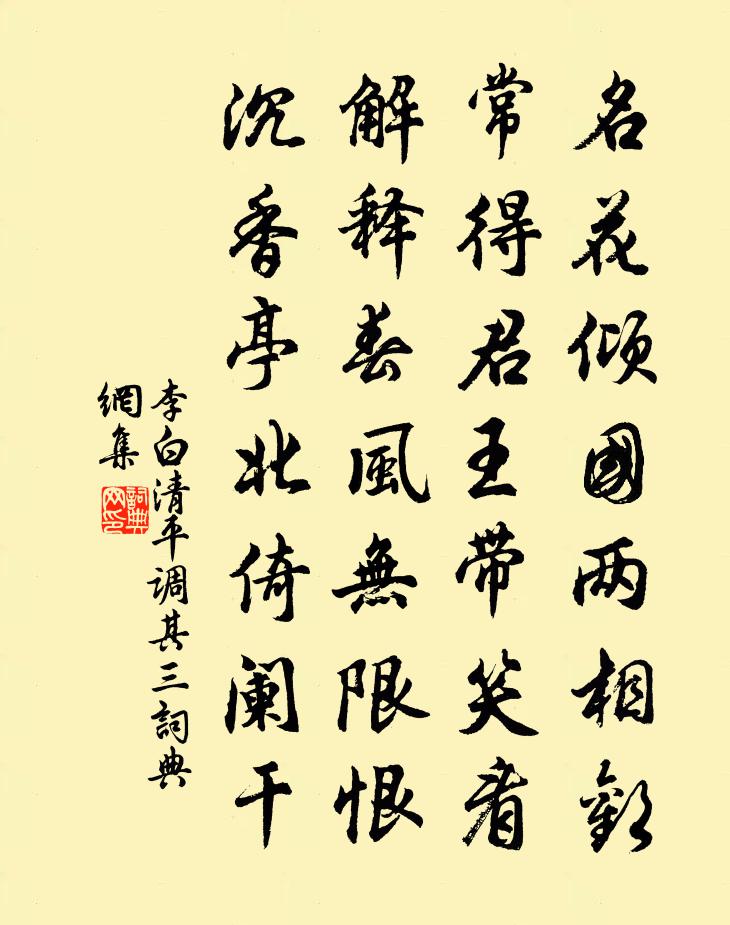 名花倾國两相歡
常得君王带笑看
解释春風無限恨
沉香亭北倚阑干
李白清平调其三詞典
網集
詞典网印